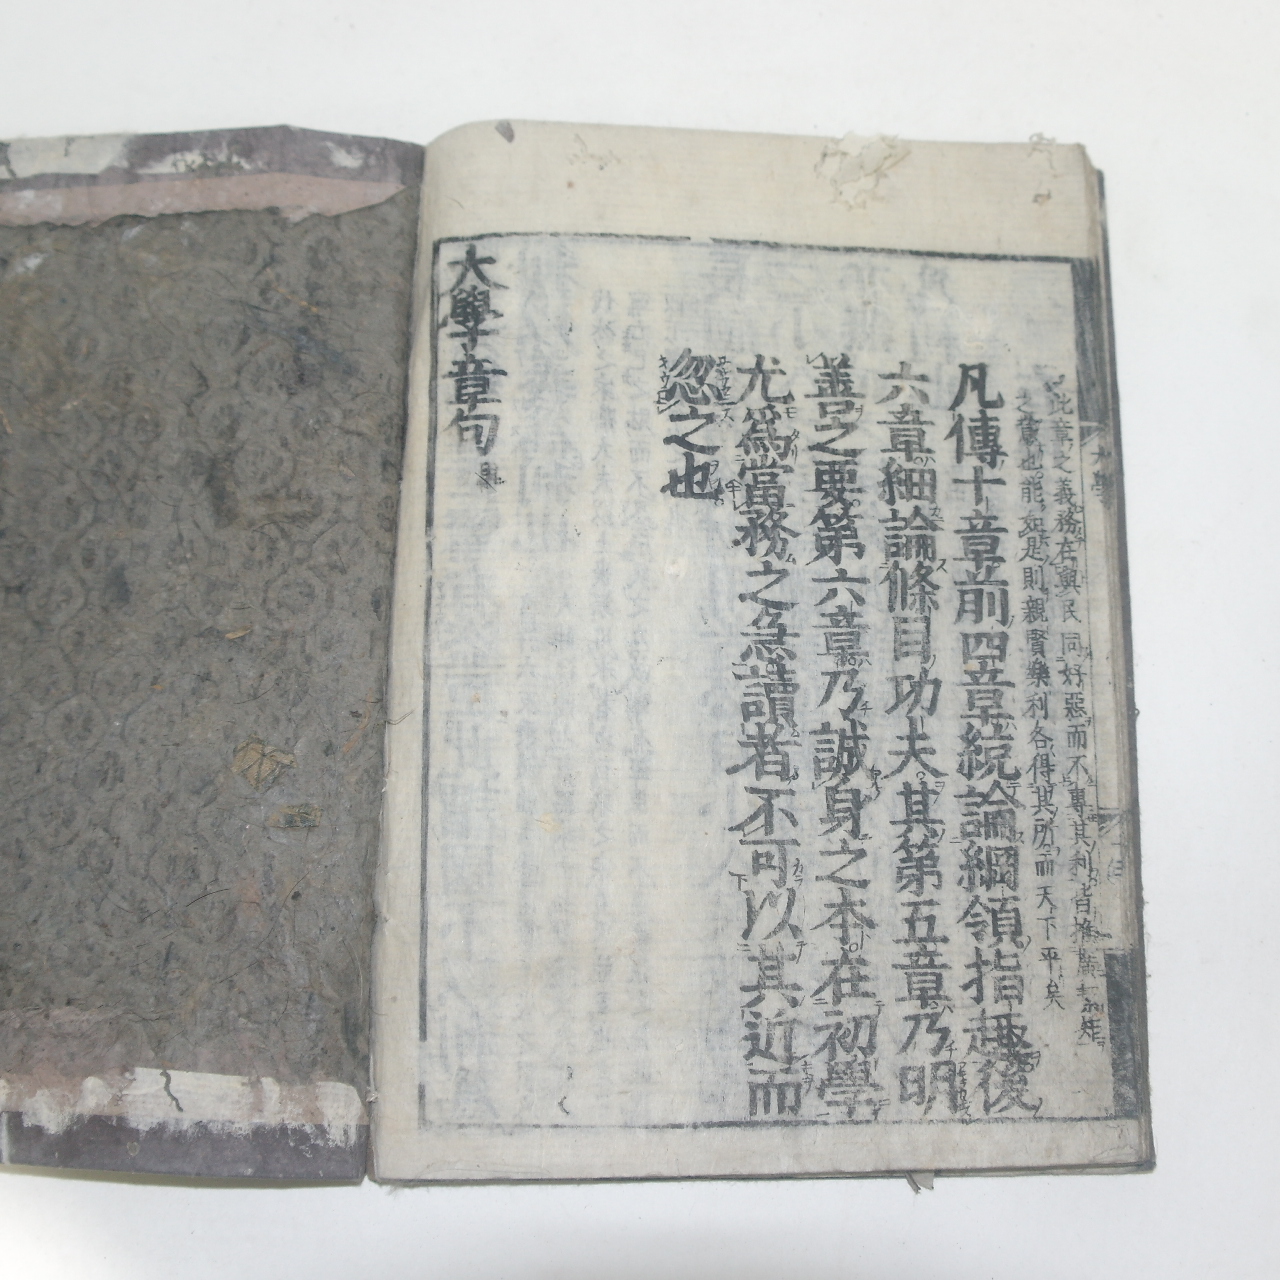 此章之義務在與民同好惡而不專其利皆推廣絜矩
之意也能如是則親賢樂利各得其所而天下平矣
凡傳十章前四章統論綱領指趣後
六章細論條目功夫其第五章乃明
善之要第六章乃誠身之本在初學
尤爲當務之急讀者不可以其近而
忽之也
大學章句
大學